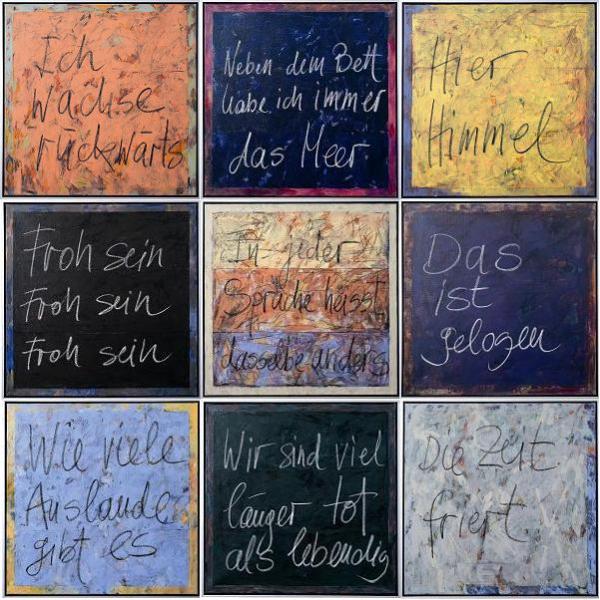 Ich
wachse
rückwärts
Neben dem Bett
habe ich immer
das Meer
Hier
Himmel
Froh sein
Froh sein
Froh sein
In jeder
Sprache heisst
dasselbe anders
Das
ist
gelogen
Wie viele
Auslande
gibt es
Wir sind viel
länger tot
als lebendig
Die Zeit
friert